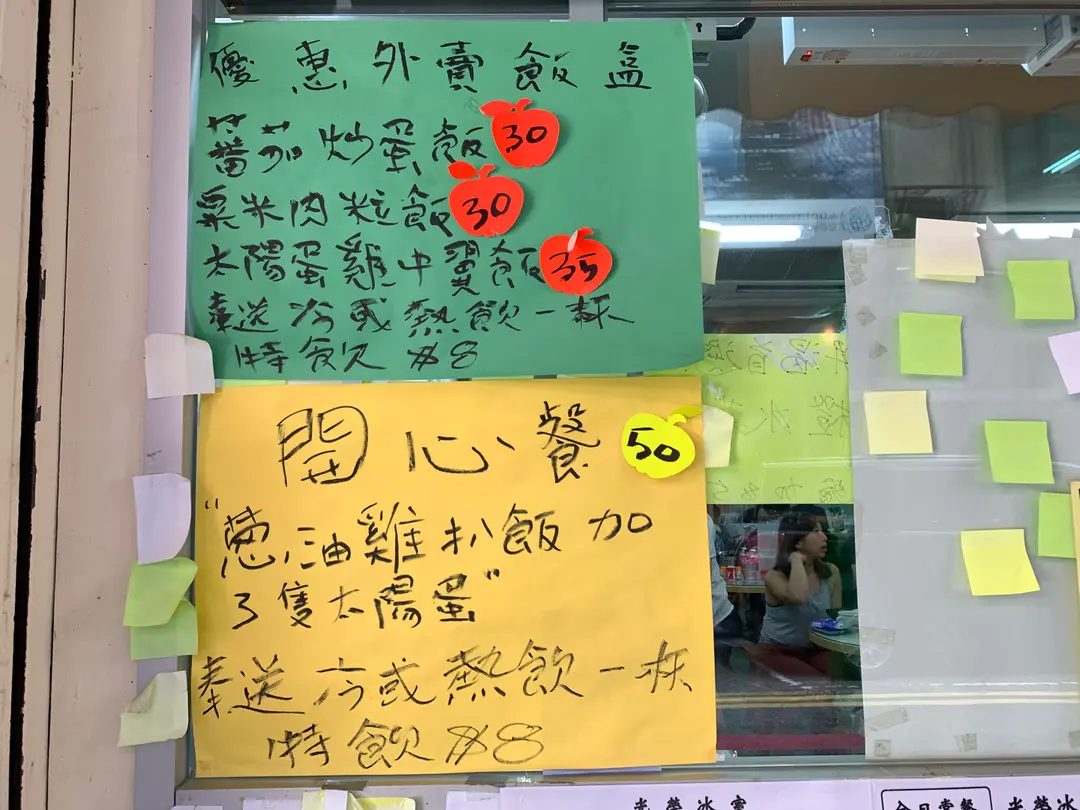 優惠外賣飯盒
蕃茄炒蛋飯 30
粟米肉粒飯 30
太陽蛋雞中翼飯 35
奉送冷或熱飲一杯
特飲 $8
開心餐 50
"葱油雞扒飯加
3隻太陽蛋"
奉送冷或熱飲一杯
特飲 $8
今日常餐